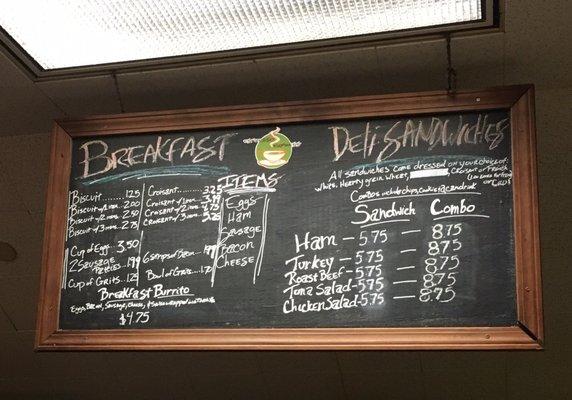 BREAKFAST
Biscuit ...... 1.25
Biscuit w/1 item ... 2.00
Biscuit w/2 items .. 2.50
Biscuit w/3 items .. 2.50
Croissant ...... 3.25
Croissant w/1 item
Croissant w/2 items 4.75
Croissant w/3 items 5.25
ITEMS
Eggs
Ham
Sausage
Bacon
Cheese
Cup of Eggs . 3.50
2 Sausage
Patties .. 1.99
Cup of Grits .. 1.25
Bowl of Grits ..
Breakfast Burrito
Eggs, Bacon, Sausage, Cheese,
$4.75
DELI SANDWICHES
All sandwiches come dressed on your choice of:
White, Hearty grain, Wheat, Croissant or French
Combos include chips, cookies and a drink
Sandwich Combo
Ham - 5.75 - 8.75
Turkey - 5.75 - 8.75
Roast Beef - 5.75 - 8.75
Tuna Salad - 5.75 - 8.75
Chicken Salad - 5.75 - 8.75